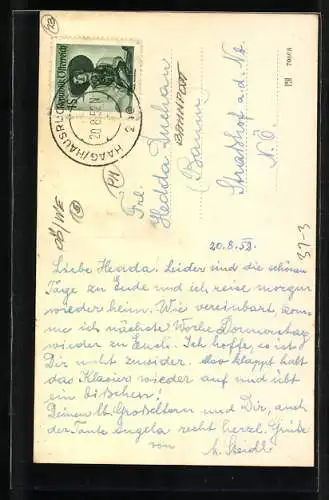 Republik Österreich
1S
HAAG/HAUSRUCK
20.8.52
Frl.
Hedda Duchan
BAHNPOST
(Baum)
Strasshof a.d. Nb.
N.Ö.
20.8.52.
37-3
OÖ/WE
Liebe Hedda! Leider sind die schönen
Tage zu Ende und ich reise morgen
wieder heim. Wie vereinbart, kom-
me ich nächste Woche Donnerstag
wieder zu Euch. Ich hoffe, es ist
Dir nicht zuwider. Also klappt halt
das Klavier wieder auf und übt
ein bißchen!
Deinen lb. Großeltern und Dir, auch
der Tante Angela recht herzl. Grüße
von